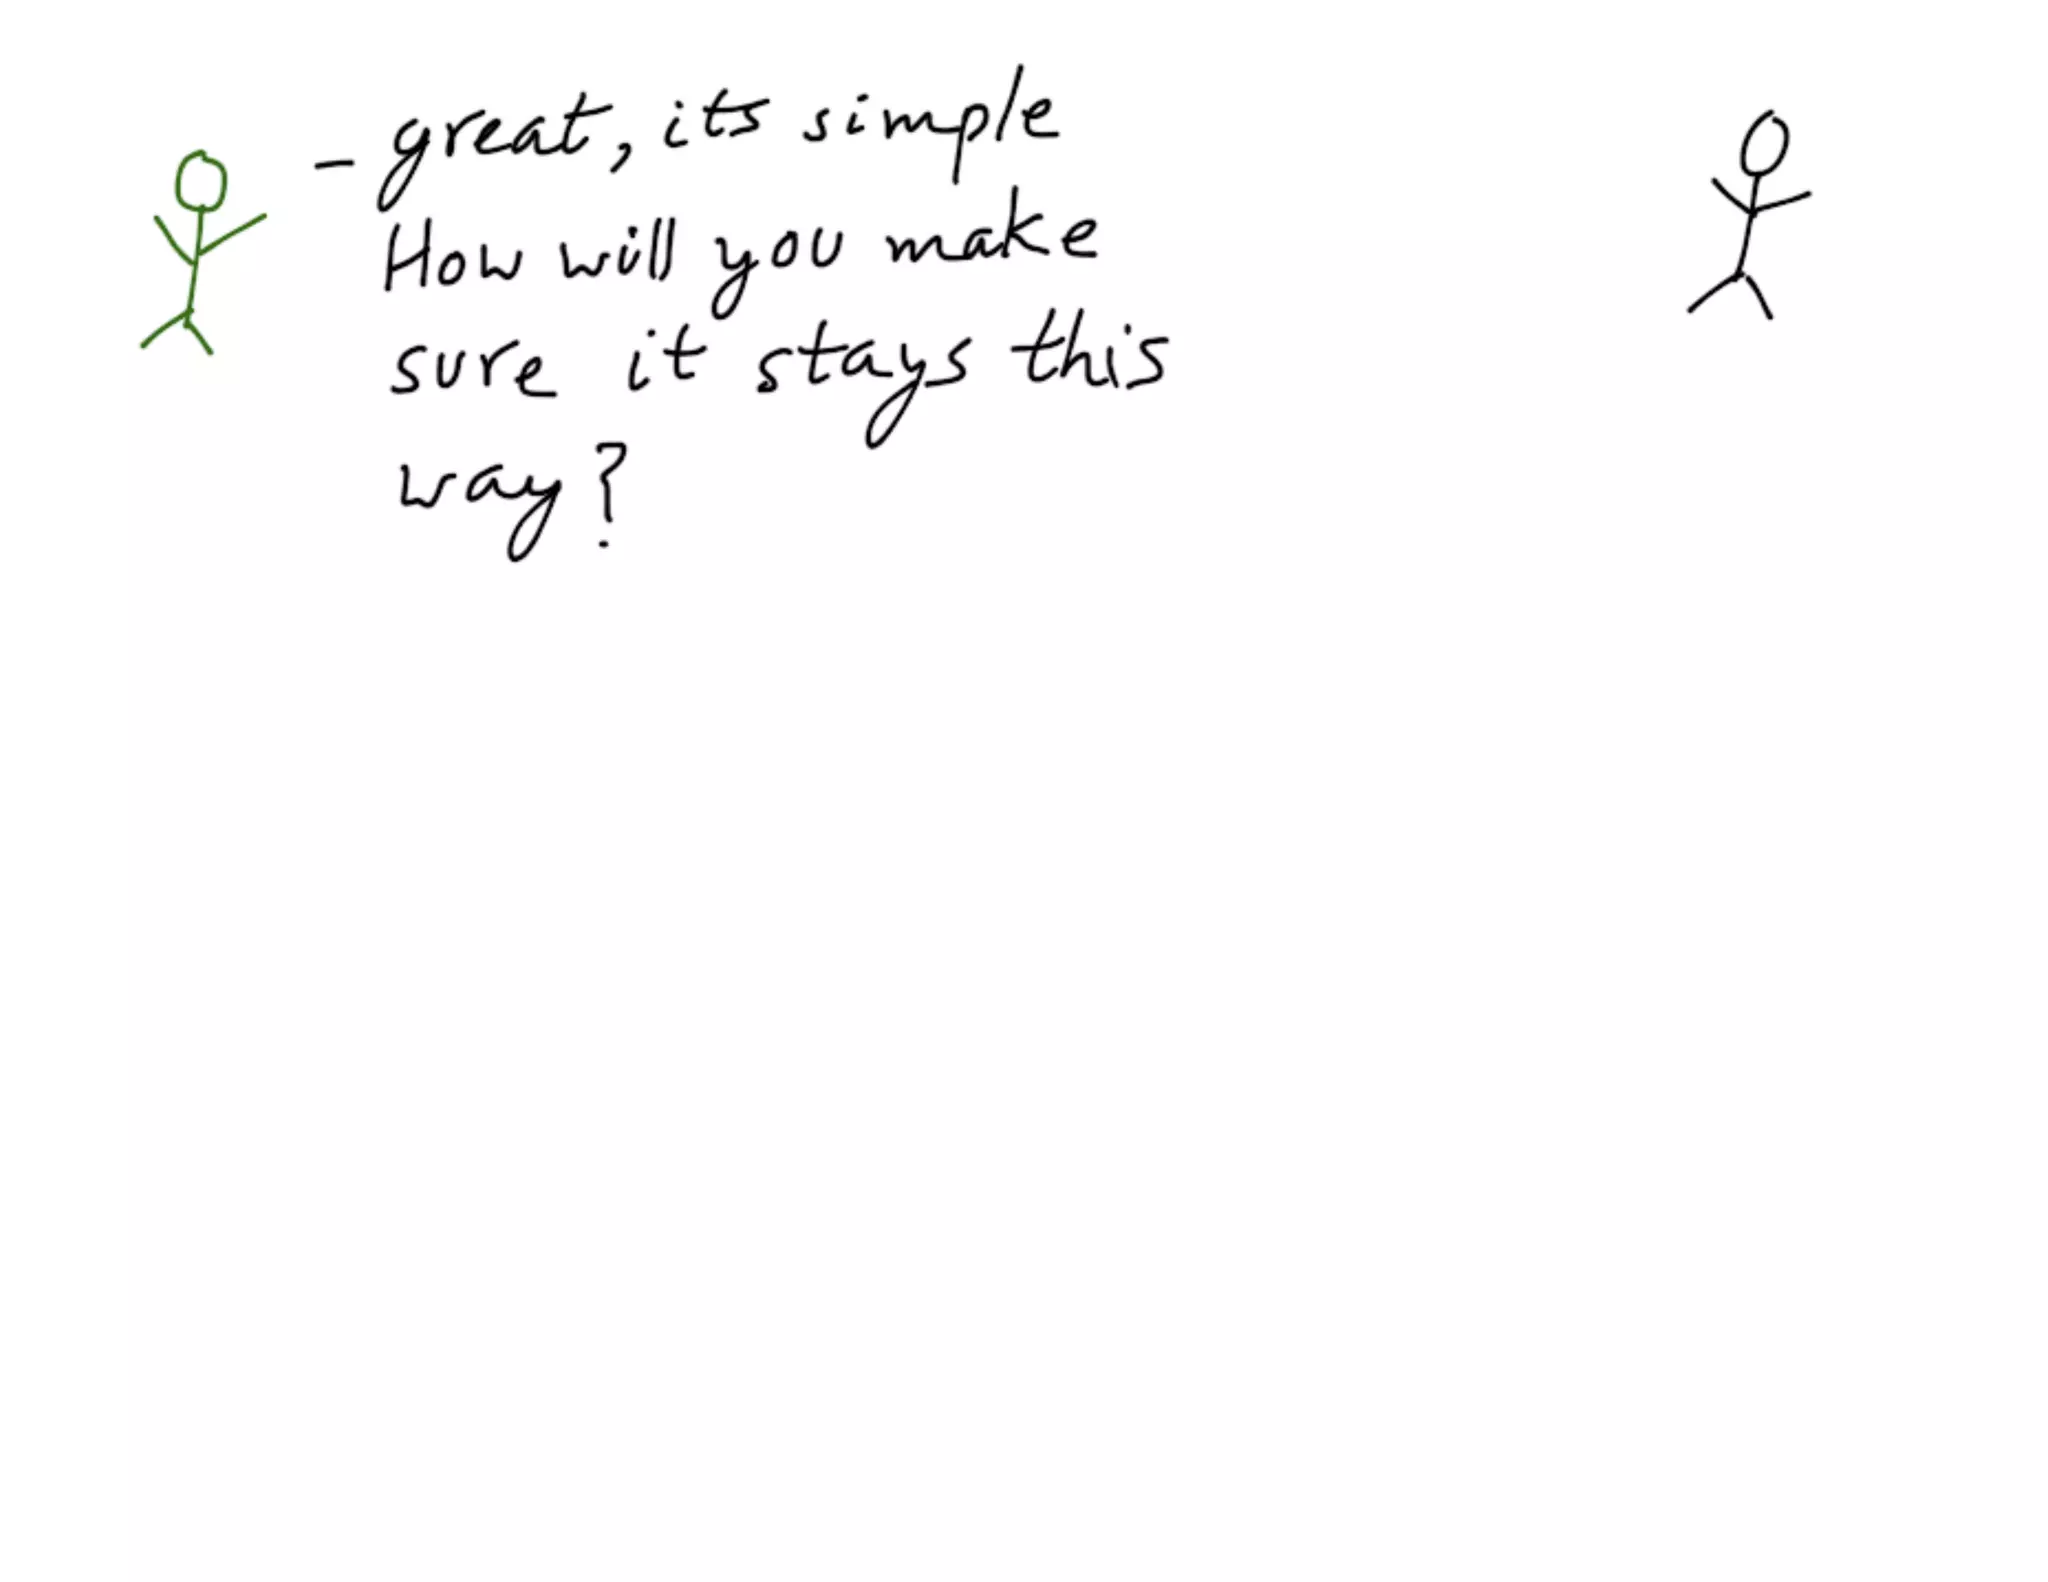 - great, its simple
How will you make
sure it stays this
way?